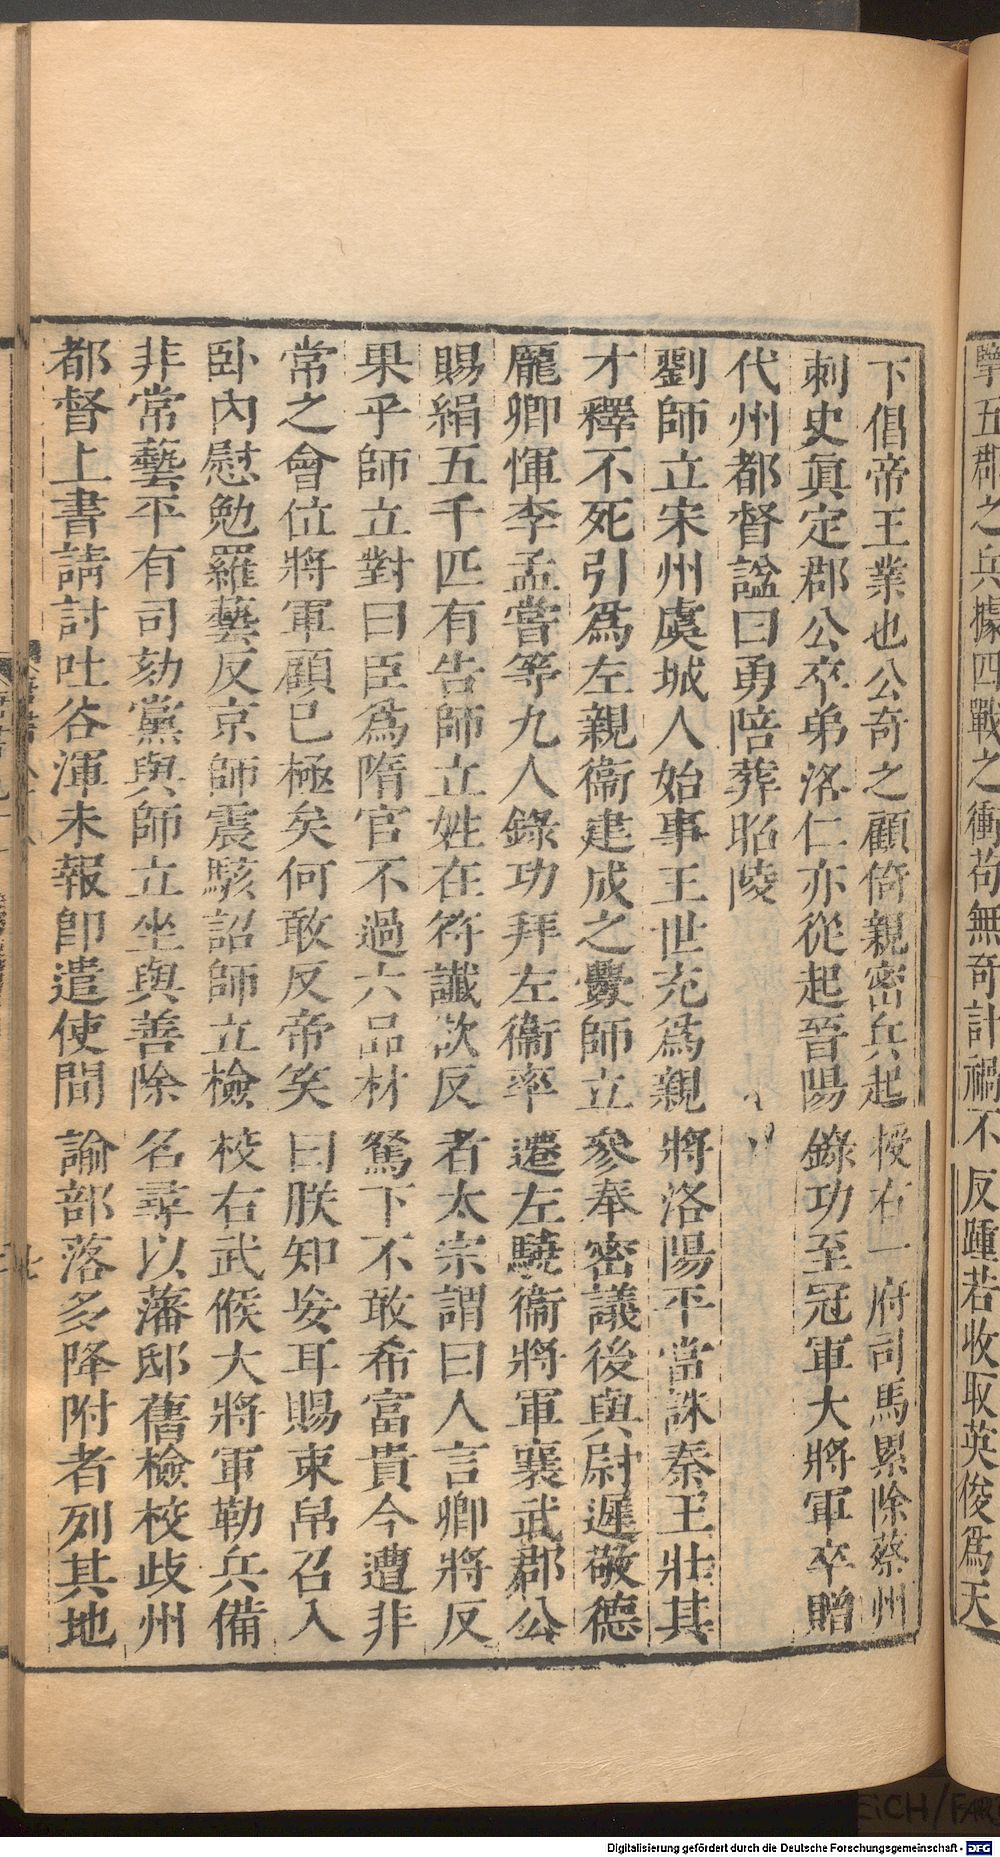 擊五郡之兵據四戰之衝苟無奇計禍不反踵若收取英俊爲天
下倡帝王業也公奇之顧倚親密兵起授右一府司馬累除蔡州
刺史眞定郡公卒弟洛仁亦從起晉陽錄功至冠軍大將軍卒贈
代州都督諡曰勇陪葬昭陵
劉師立宋州虞城人始事王世充爲親將洛陽平當誅秦王壯其
才釋不死引爲左親衞建成之釁師立參奉密議後與尉遲敬德
龐卿惲李孟嘗等九人錄功拜左衞率遷左驍衞將軍襄武郡公
賜絹五千匹有告師立姓在符讖欲反者太宗謂曰人言卿將反
果乎師立對曰臣爲隋官不過六品材駑下不敢希富貴今遭非
常之會位將軍顧已極矣何敢反帝笑曰朕知妄耳賜束帛召入
卧內慰勉羅藝反京師震駭詔師立檢校右武候大將軍勒兵備
非常藝平有司劾黨與師立坐與善除名尋以藩邸舊檢校歧州
都督上書請討吐谷渾未報卽遣使間諭部落多降附者列其地
Digitalisierung gefördert durch die Deutsche Forschungsgemeinschaft - DFG